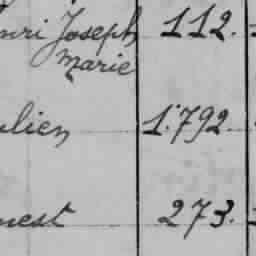 nri Joseph 112.
Marie
ulien 1.792
nest 273.